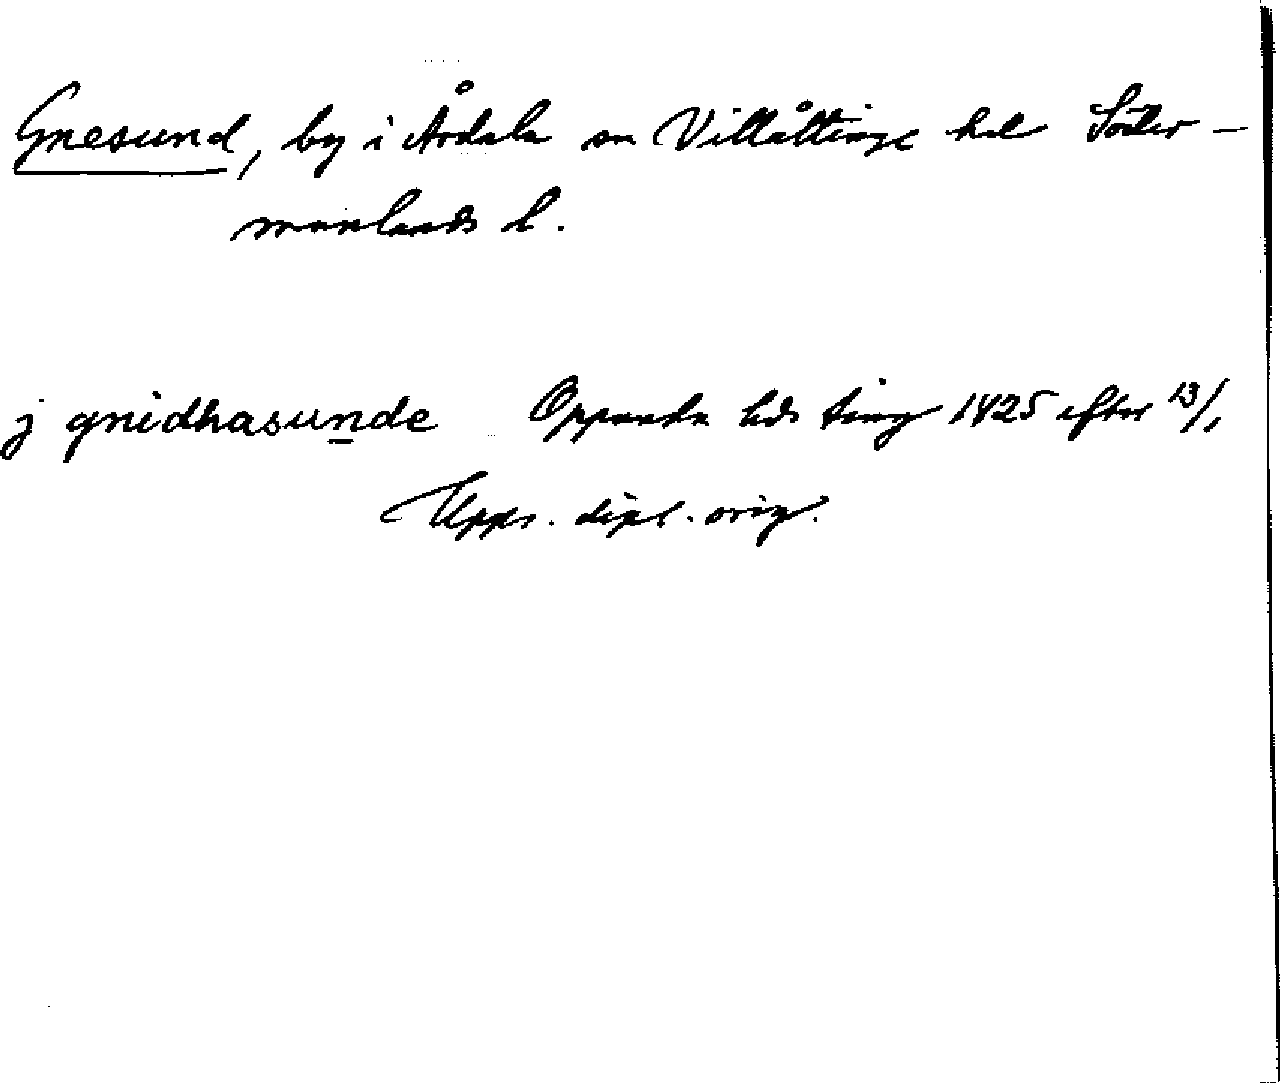 Gnesund, by i Årdala sn Villåttinge hd Söder-
manlands l.
j gnidhasunde Oppunda hds ting 1425 efter 13/1
Upps. dipl. orig.